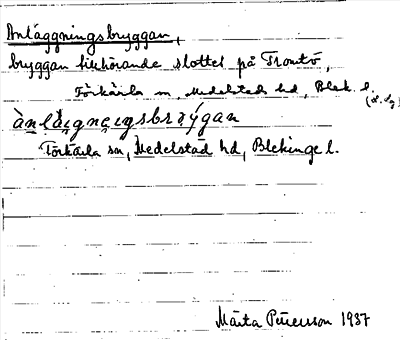 Anläggningsbryggan,
bryggan tillhörande slottet på Tromtö,
Förkärla sn, Medelstads hd, Blek. l.
ànlä̀gnɩŋsbrýgan
Förkärla sn, Medelstad hd, Blekinge l.
Märta Petersson 1937